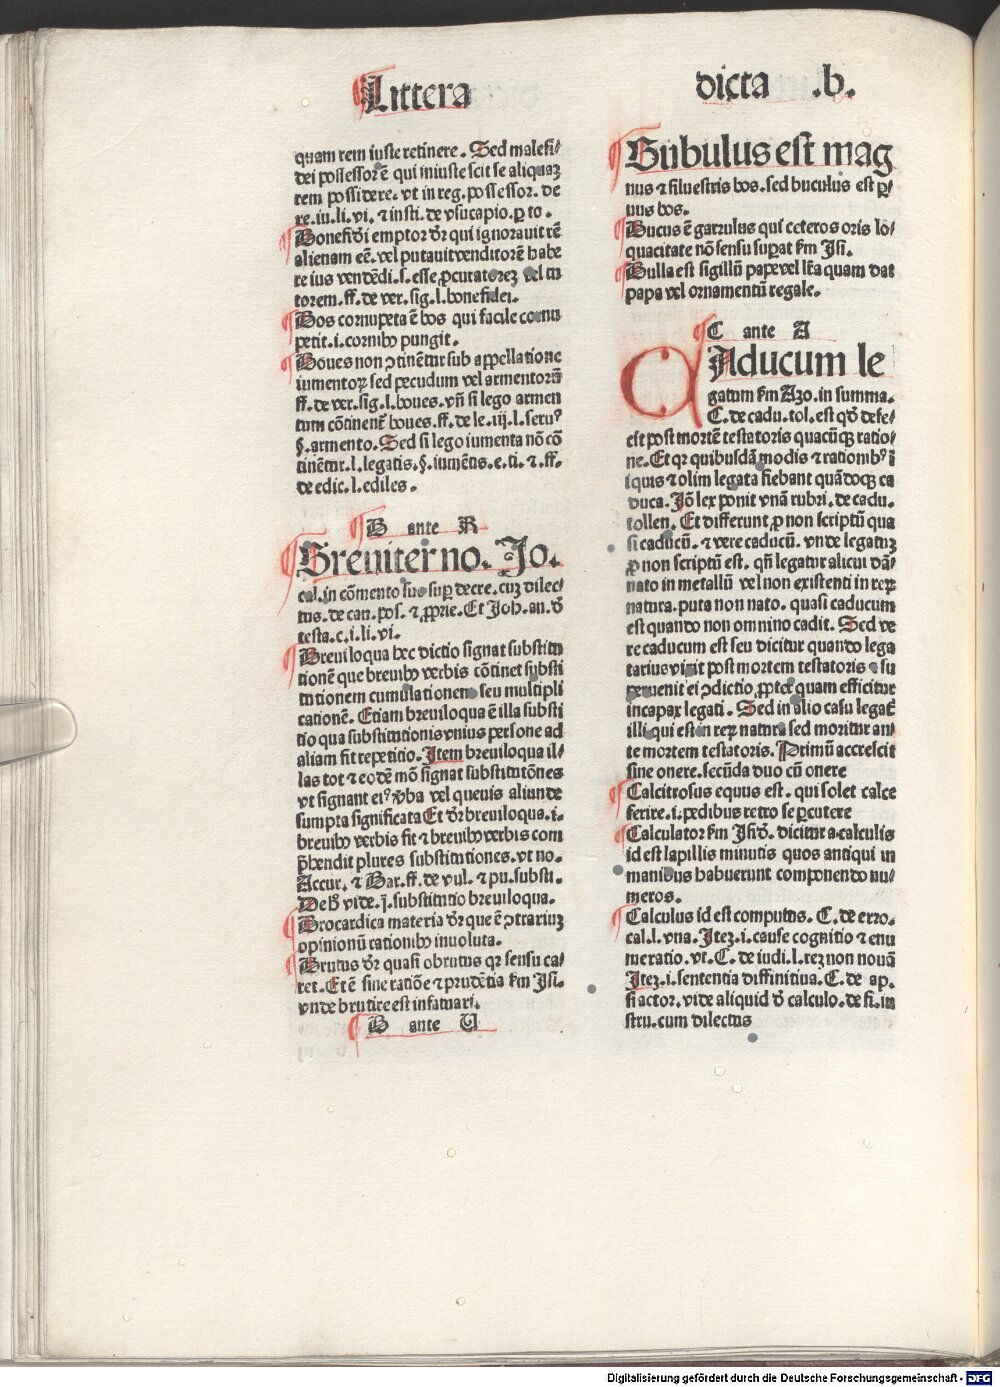 Littera
dicta .b.
quam rem iuste retinere. Sed malefi/
dei possessor ē qui iniuste scit se aliquaʒ
rem possidere. vt in reg. possessor. de
re. iu. li. vi. ⁊ insti. de vsucapio. ꝑ to.
Bonefidei emptor dr̄ qui ignorauit rē
alienam eē. vel putauit venditorē habe
re ius vendēdi. s. esse ꝓcuratoreʒ vel tu
torem. ff. de ver. sig. l. bonefidei.
Bos cornupeta ē bos qui facile cornu
petit. i. cornibꝰ pungit.
Boues non ꝯtinētur sub appellatione
iumentoꝝ sed pecudum vel armentorū
ff. de ver. sig. l. boues. vn̄ si lego armen
tum cōtinent̄ boues. ff. de le. iij. l. seruꝰ
§. armento. Sed si lego iumenta nō cō
tinētur. l. legatis. §. iumētis. e. ti. ⁊. ff.
de edic. l. ediles.
B ante R
Breuiter no. Jo.
cal. in cōmento suo suꝑ decre. cuʒ dilec/
tus. de can. pos. ⁊ ꝓprie. Et Joh. an. d̄
testa. c. i. li. vi.
Breuiloqua hec dictio signat substitu
tionē que breuibꝰ verbis cōtinet substi
tutionem cumulationem seu multipli
cationē. Etiam breuiloqua ē illa substi
tio qua substitutionis vnius persone ad
aliam fit repetitio. Item breuiloqua il/
las tot ⁊ eodē mō signat substitutōnes
vt signant eiꝰ v̄ba vel queuis aliunde
sumpta significata Et dr̄ breuiloqua. i.
breuibꝰ verbis fit ⁊ breuibꝰ verbis com
p̄hendit plures substitutiones. vt no.
Accur. ⁊ Bar. ff. de vul. ⁊ pu. substi.
Debꝫ vide. j. substitutio breuiloqua.
Brocardica materia dr̄ que ē ꝯtrariuʒ
opinionū rationibꝰ inuoluta.
Brutus dr̄ quasi obrutus qꝛ sensu ca/
ret. Et ē sine ratiōe ⁊ prudētia ẜm Jsi.
vnde brutire est infatuari.
B ante U
Bubulus est mag
nus ⁊ siluestris bos. sed buculus est ꝑ/
uus bos.
Bucus ē garrulus qui ceteros oris lo/
quacitate nō sensu suꝑat ẜm Jsi.
Bulla est sigillū pape vel lr̄a quam dat
papa vel ornamentū regale.
C ante A
CAducum le
gatum ẜm Azo. in summa.
C. de cadu. tol. est qd̄ defe/
cit post mortē testatoris quacūqꝫ ratio/
ne. Et qꝛ quibusdā modis ⁊ rationibꝰ ī
iquis ⁊ olim legata fiebant quādoqꝫ ca
duca. Jō lex ponit vnā rubri. de cadu.
tollen. Et differunt ꝓ non scriptū qua
si caducū. ⁊ vere caducū. vnde legatuʒ
ꝓ non scriptū est. qn̄ legatur alicui dā/
nato in metallū vel non existenti in reꝝ
natura. puta non nato. quasi caducum
est quando non omnino cadit. Sed ve
re caducum est seu dicitur quando lega
tarius vixit post mortem testatoris ⁊ su
peruenit ei ꝯdictio ꝓpter quam efficitur
incapax legati. Sed in alio casu legat̄
illi qui est in reꝝ natura sed moritur an/
te mortem testatoris. Primū accrescit
sine onere. secūda duo cū onere
Calcitrosus equus est. qui solet calce
ferire. i. pedibus retro se ꝑcutere
Calculator ẜm Jsid. dicitur a calculis
id est lapillis minutis quos antiqui in
manibus habuerunt componendo nu/
meros.
Calculus id est computus. C. de erro.
cal. l. vna. Jteʒ. i. cause cognitio ⁊ enu
meratio. vt. C. de iudi. l. reʒ non nouā
Jteʒ. i. sententia diffinitiua. C. de ap.
si actor. vide aliquid d̄ calculo. de fi. in
stru. cum dilectus
Digitalisierung gefördert durch die Deutsche Forschungsgemeinschaft - DFG